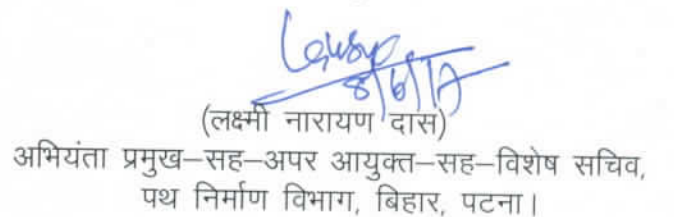 8/6/17
(लक्ष्मी नारायण दास)
अभियंता प्रमुख–सह–अपर आयुक्त–सह–विशेष सचिव,
पथ निर्माण विभाग, बिहार, पटना।